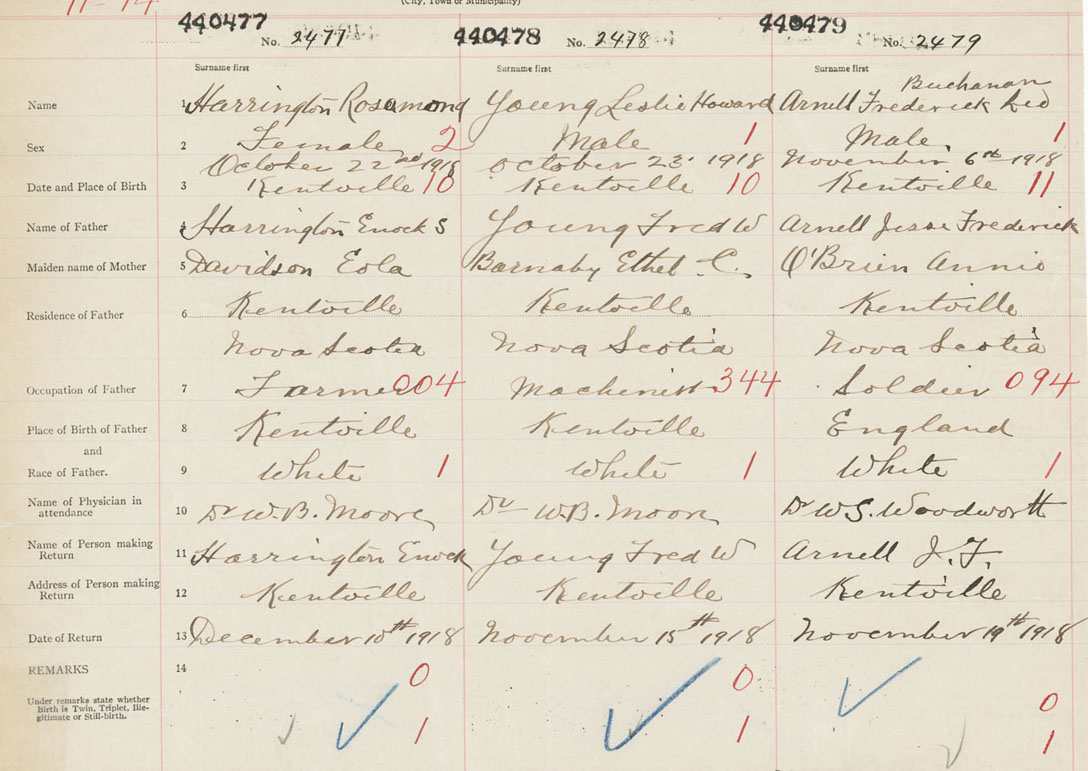 11-14
(City, Town or Municipality)
440477 440478 440479
No. 2477 No. 2478 No. 2479
Surname first Surname first Surname first
Buchanan
Name 1 Harrington Rosamond Young Leslie Howard Arnell Frederick Leo
Sex 2 Female 2 Male 1 Male 1
October 22nd 1918 October 23 1918 November 6th 1918
Date and Place of Birth 3 Kentville 10 Kentville 10 Kentville 11
Name of Father 4 Harrington Enock S Young Fred W Arnell Jesse Frederick
Maiden name of Mother 5 Davidson Eola Barnaby Ethel C. O'Brien Annie
Residence of Father 6 Kentville Kentville Kentville
Nova Scotia Nova Scotia Nova Scotia
Occupation of Father 7 Farmer 004 Machinist 344 Soldier 094
Place of Birth of Father 8 Kentville Kentville England
and
Race of Father. 9 White 1 White 1 White 1
Name of Physician in
attendance 10 Dr W.B. Moore Dr W.B. Moore Dr W.S. Woodworth
Name of Person making
Return 11 Harrington Enock Young Fred W Arnell J. F.
Address of Person making
Return 12 Kentville Kentville Kentville
Date of Return 13 December 10th 1918 November 15th 1918 November 19th 1918
REMARKS 14
0 0 0
Under remarks state whether
Birth is Twin, Triplet, Ille-
gitimate or Still-birth.
1 1 1